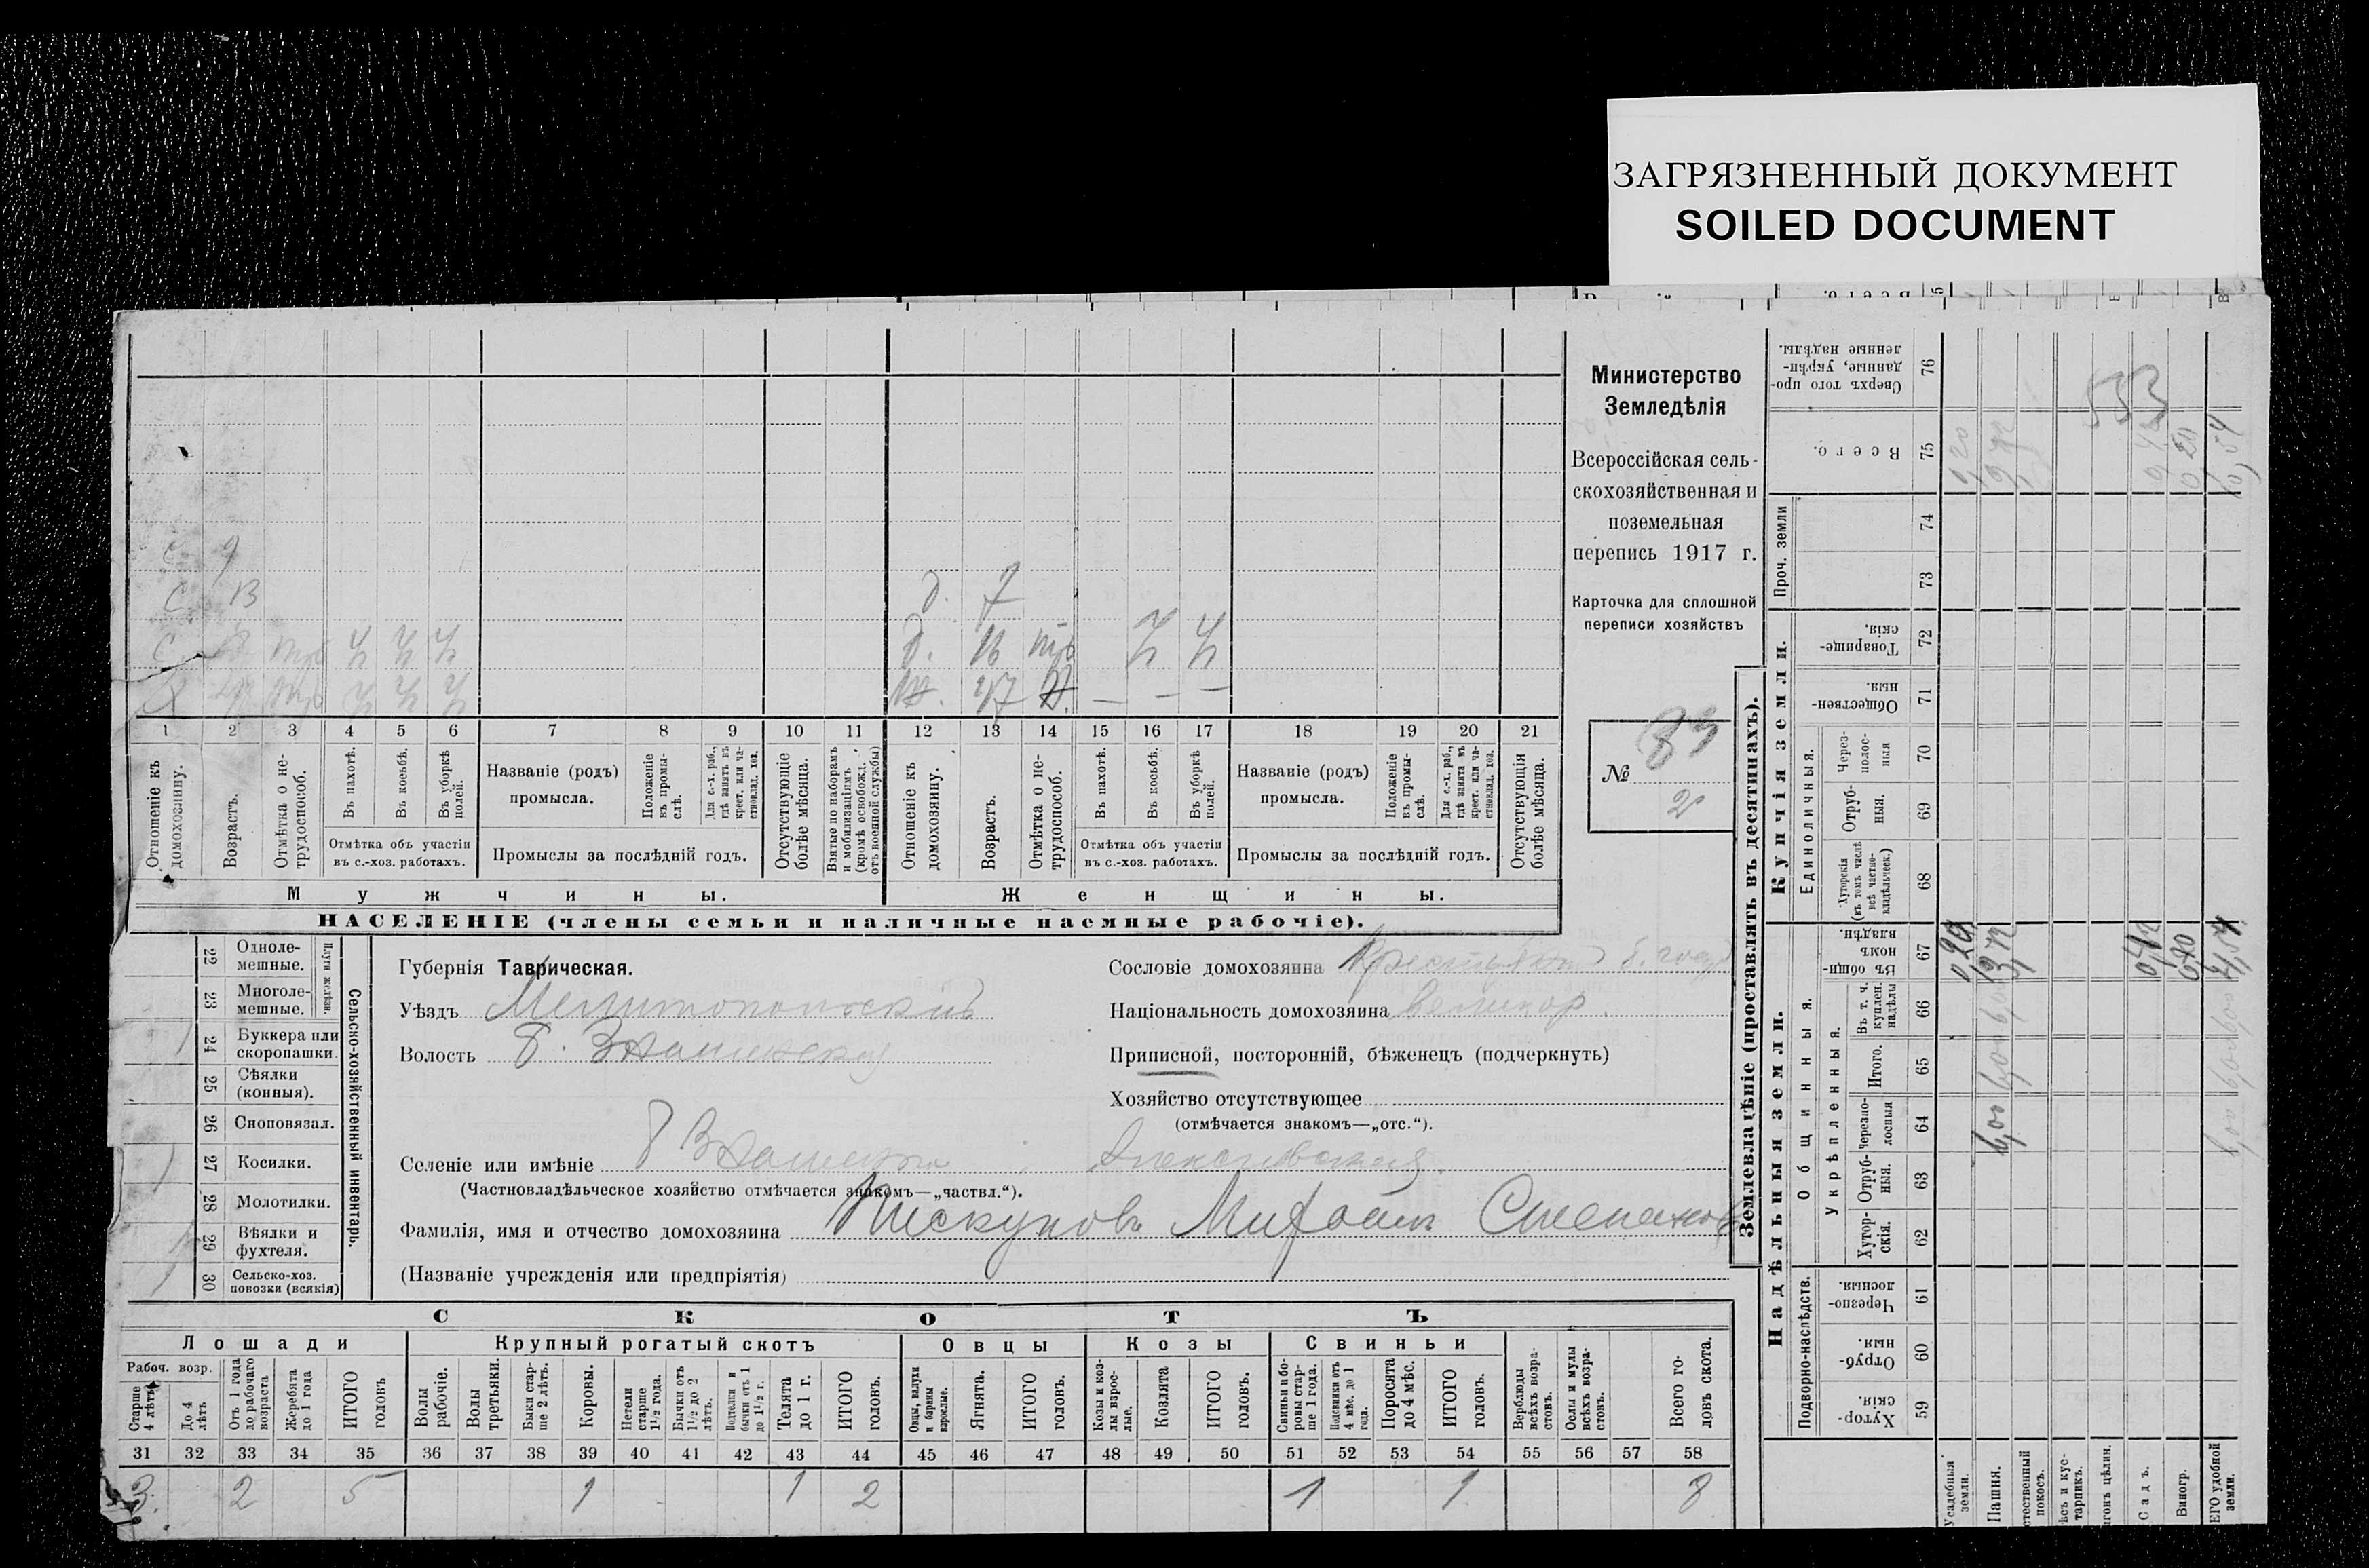 ЗАГРЯЗНЕННЫЙ ДОКУМЕНТ
SOILED DOCUMENT
Министерство
Земледѣлія
Всероссійская сель-
скохозяйственная и
поземельная
перепись 1917 г.
Карточка для сплошной
переписи хозяйствъ
№ 83
2
С 9
С 13
С
д. 7
д. 16
47
1 2 3 4 5 6 7 8 9 10 11 12 13 14 15 16 17 18 19 20 21
Отношеніе къ домохозяину.
Возрастъ.
Отмѣтка о не-трудоспособ.
Въ пахотѣ.
Въ косьбѣ.
Въ уборкѣ полей.
Отмѣтка объ участіи въ с.-хоз. работахъ.
Названіе (родъ) промысла.
Положеніе въ промы-слѣ.
Для с.-х. раб., гдѣ занятъ въ крест. или ча-стновлад. хоз.
Промыслы за послѣдній годъ.
Отсутствующіе болѣе мѣсяца.
Взятые по наборамъ и мобилизаціямъ (кромѣ освобожд. отъ военной службы)
Отношеніе къ домохозяину.
Возрастъ.
Отмѣтка о не-трудоспособ.
Въ пахотѣ.
Въ косьбѣ.
Въ уборкѣ полей.
Отмѣтка объ участіи въ с.-хоз. работахъ.
Названіе (родъ) промысла.
Положеніе въ промы-слѣ.
Для с.-х. раб., гдѣ занята въ крест. или ча-стновлад. хоз.
Промыслы за послѣдній годъ.
Отсутствующія болѣе мѣсяца.
Мужчины.
Женщины.
НАСЕЛЕНІЕ (члены семьи и наличные наемные рабочіе).
22 Одноле-мешные.
23 Многоле-мешные.
Плуги желѣзн.
24 Буккера или скоропашки.
25 Сѣялки (конныя).
26 Сноповязал.
27 Косилки.
28 Молотилки.
29 Вѣялки и фухтеля.
30 Сельско-хоз. повозки (всякія)
Сельско-хозяйственный инвентарь.
Губернія Таврическая.
Уѣздъ Мелитопольскій
Волость Б. Знаменская
Селеніе или имѣніе Б Знаменка Алексѣевская
(Частновладѣльческое хозяйство отмѣчается знакомъ—„частвл.“).
Фамилія, имя и отчество домохозяина Пискуновъ Михаилъ Степанов
(Названіе учрежденія или предпріятія)
Сословіе домохозяина
Національность домохозяина великор.
Приписной, посторонній, бѣженецъ (подчеркнуть)
Хозяйство отсутствующее
(отмѣчается знакомъ—„отс.“).
СКОТЪ
Лошади
Крупный рогатый скотъ
Овцы
Козы
Свиньи
Рабоч. возр.
Старше 4 лѣтъ
До 4 лѣтъ
Отъ 1 года до рабочаго возраста
Жеребята до 1 года
ИТОГО головъ
Волы рабочіе.
Волы третьяки.
Быки стар-ше 2 лѣтъ.
Коровы.
Нетели старше 1½ года.
Бычки отъ 1½ до 2 лѣтъ.
Подтелки и бычки отъ 1 до 1½ г.
Телята до 1 г.
ИТОГО головъ.
Овцы, валухи и бараны взрослые.
Ягнята.
ИТОГО головъ.
Козы и коз-лы взрос-лые.
Козлята
ИТОГО головъ.
Свиньи и бо-ровы стар-ше 1 года.
Подсвинки отъ 4 мѣс. до 1 года.
Поросята до 4 мѣс.
ИТОГО головъ.
Верблюды всѣхъ возра-стовъ.
Ослы и мулы всѣхъ возра-стовъ.
Всего го-ловъ скота.
31 32 33 34 35 36 37 38 39 40 41 42 43 44 45 46 47 48 49 50 51 52 53 54 55 56 57 58
3 2 5 1 1 2 1 1 8
Землевладѣніе (проставлять въ десятинахъ).
Надѣльныя земли.
Купчія земли.
Проч. земли
Подворно-наслѣдств.
Общинныя.
Укрѣпленныя.
Единоличныя.
Хутор-скія 59
Отруб-ныя. 60
Черезпо-лосныя. 61
Хутор-скія. 62
Отруб-ныя. 63
Черезпо-лосныя 64
Итого. 65
Въ т. ч. куплен. надѣлы 66
Въ общин-номъ владѣн. 67
Хуторскія (въ томъ числѣ всѣ частно-владѣльческ.) 68
Отруб-ныя. 69
Через-полос-ныя 70
Обществен-ныя. 71
Товарище-скія. 72
73
74
Всего. 75
Сверхъ того про-данные, укрѣп-ленные надѣлы. 76
Усадебныя земли.
Пашня.
тественный покосъ.
ѣсъ и кус-тарникъ.
гонъ цѣлин.
Садъ.
Виногр.
ЕГО удобной земли.
553